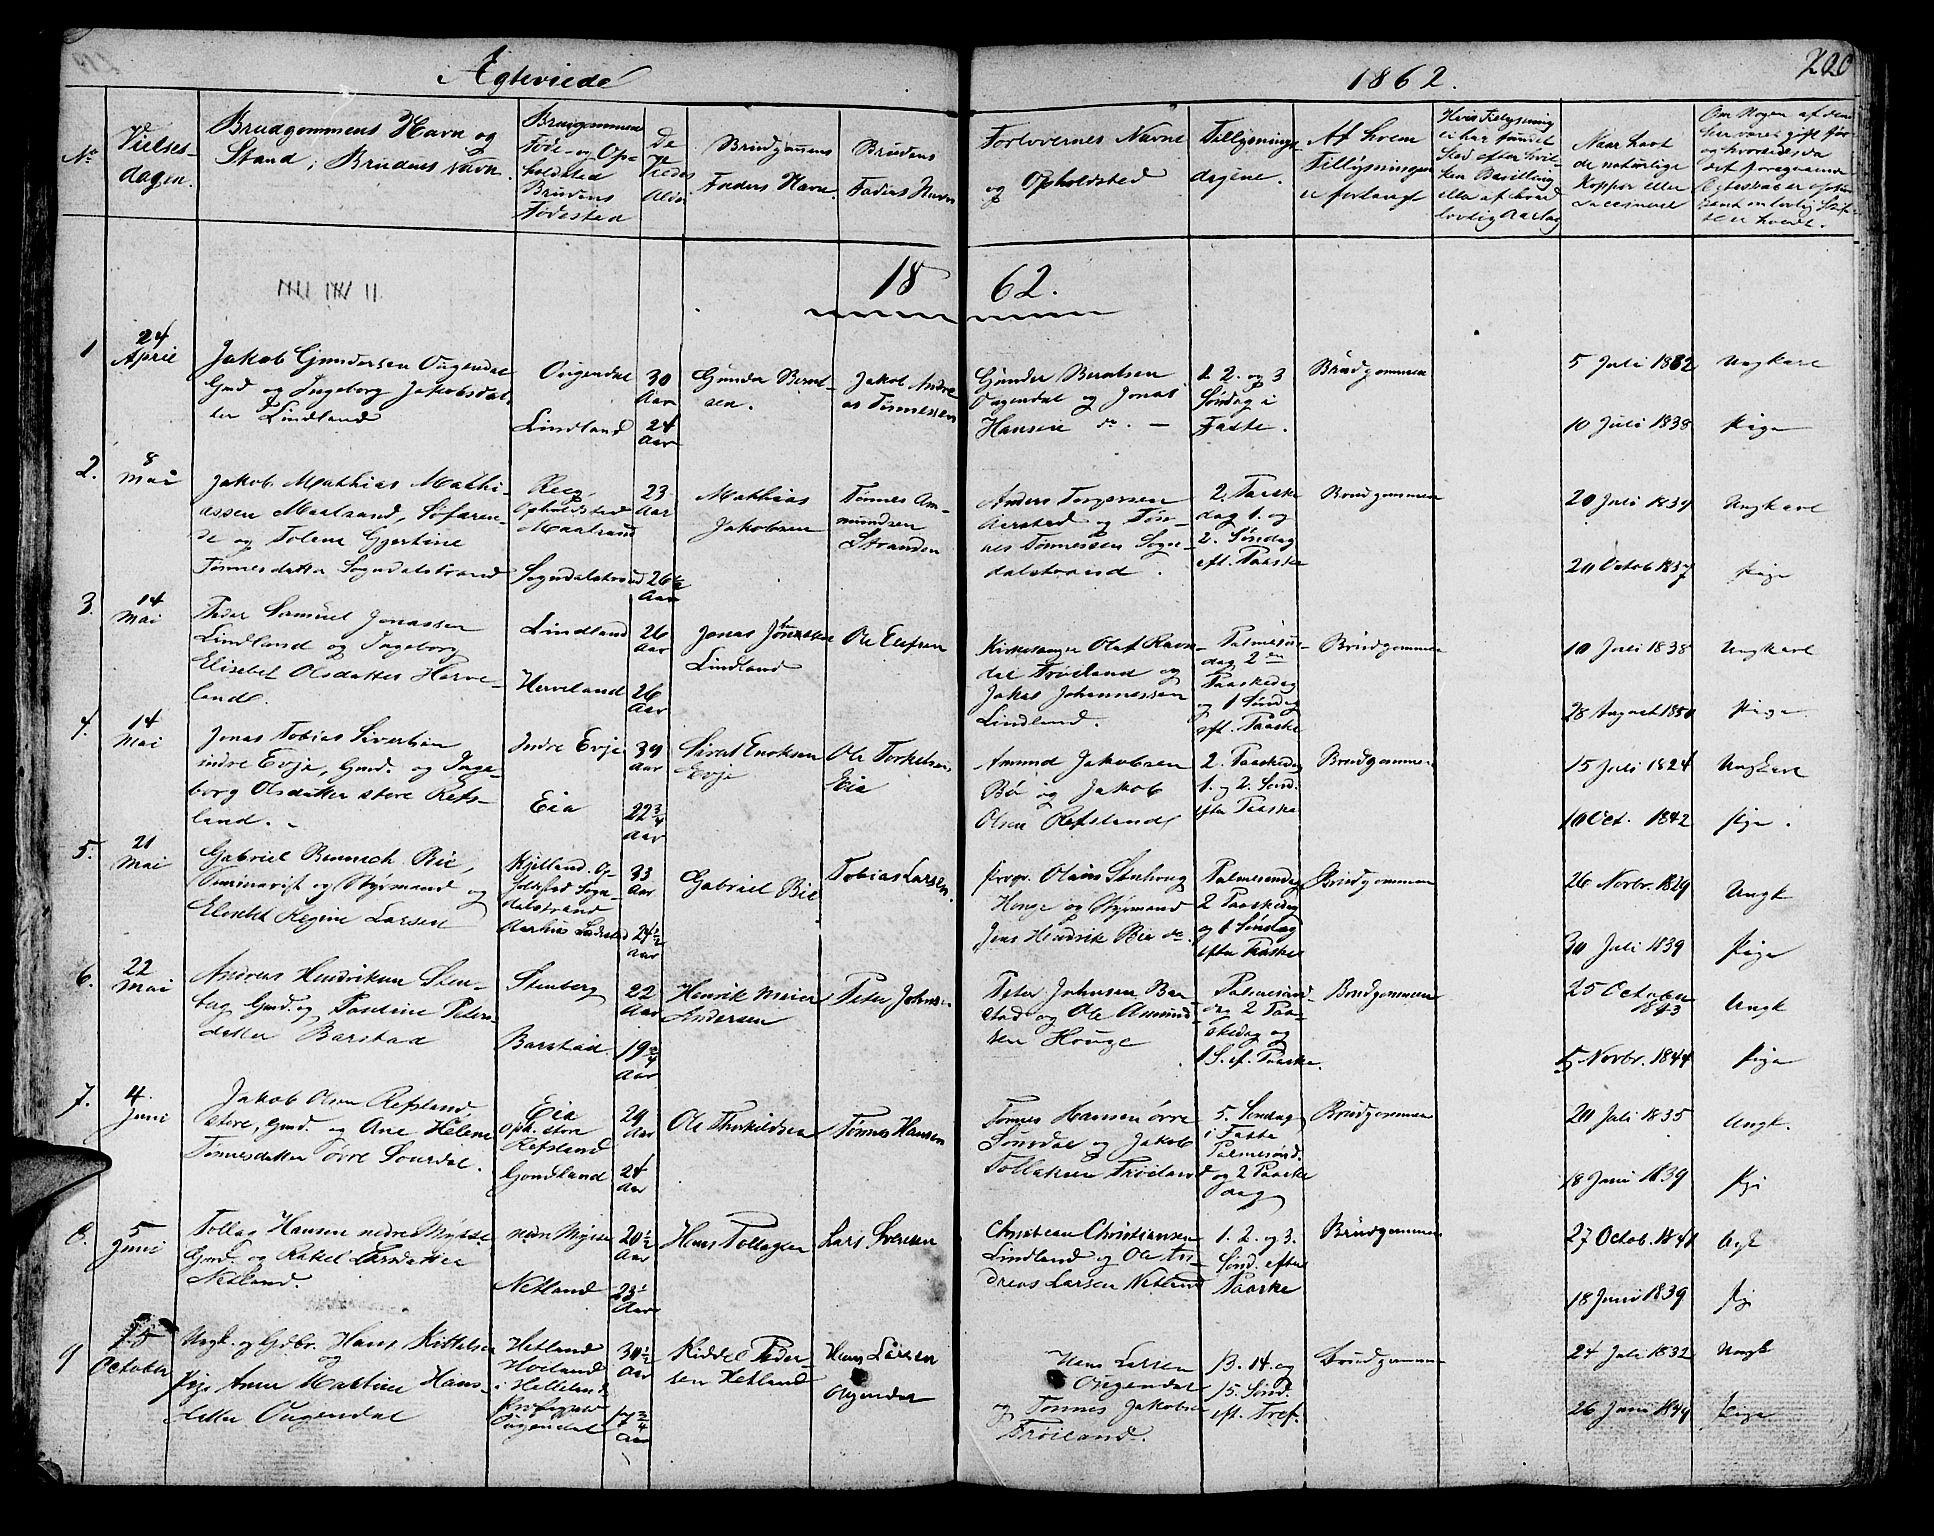 Ægteviede
1862.
220
No
Vielses-
dagen.
Brudgommens Navn og
Stand, Brudens Navn.
Brudgommens
Føde- og Op-
holdsted
Brudens
Fødested
De
Viedes
Alder
Brudgommens
Faders Navn
Brudens
Faders Navn
Forlovernes Navne
og Opholdsted
Tillysnings-
dagene.
Af hvem
Tillysningen
er forlangt
Hvis Tillysning
ei har fundet
Sted efter hvil-
ken Bevilling
eller af hvad
lovlig Aarsag
Naar havt
de naturlige
Kopper eller
vaccineret
Om Nogen af dem
før været gift
18 62.
1
24
April
Jakob Gundersen Ougendal
Gmd og Ingeborg Jakobsdat-
ter Lindland
Ougendal
Lindland
30
Aar
24
Aar
Gunder Bernt-
sen.
Jakob Andre
as Tønnessen
Gunder Berntsen
Ougendal og Jonas
Hansen do. —
1. 2. og 3
Søndag i
Faste.
Brudgommen
5 Juli 1832
10 Juli 1838
Ungkarl
Pige
2.
8
Mai
Jakob Mathias Mathi-
assen Maalsand, Søfaren-
de og Tolene Gjertine
Tønnesdatter Sogndalstrand
Reg
Opholdsted
Maalsand
Sogndalstrand
23
Aar
26 1/2
Aar
Mathias
Jakobsen
Tønnes Am-
undsen
Stranden
Anders Torgersen
Aarstad og Tøn-
nes Tønnessen Sogn-
dalstrand.
2. Paaske
dag 1. og
2. Søndag
eft. Paaske
Brudgommen
20 Juli 1839
20 Octob 1837
Ungkarl
Pige
3.
14
Mai
Peder Samuel Jonassen
Lindland og Ingeborg
Elisabet Olsdatter Herve-
land.
Lindland
Herveland
26
Aar
26
Aar
Jonas
Lindland
Ole Elefsen
Kirkesanger Olaf Ravn-
dal Frøiland og
Jakob Johannessen
Lindland.
Palmesøn-
dag 2en
Paaskedag
og 1 Søndag
eft. Paaske
Brudgommen
10 Juli 1838
28 August 1850
Ungkarl
Pige
4.
14
Mai
Jonas Tobias Sivertsen
indre Evje, Gmd. og Inge-
borg Olsdatter store Refs-
land. -
Indre Evje
Eia
39
Aar
22 3/4
Aar
Sivert Enoksen
Evje
Ole Torkelsen
Eia
Amund Jakobsen
Bø og Jakob
Olsen Refsland
2. Paaskedag
1. og 2. Sønd.
efter Paaske
Brudgommen
15 Juli 1824
10 Oct. 1842
Ungkarl
Pige.
5.
21
Mai
Gabriel Bennech Bie,
Seminarist og Styrmand og
Elisabet Regine Larsen
Kjelland. Op-
holdsted Sogn-
dalstrand
Aarhus Ladested
33
Aar
24 1/2
Aar
Gabriel Bie
Tobias Larsen.
Hauge og Styrmand
Jens Hendrik Bie do.
Palmesøndag
2 Paaskedag
og 1 Søndag
efter Paaske
Brudgommen
26 Novbr. 1829
30 Juli 1839
Ungk
Pige
6.
22
Mai
Andreas Hendriksen Sten-
berg Gmd. og Pastine Peters-
datter Barstad
Stenberg
Barstad.
22
Aar
19 3/4
Aar
Henrik Meier
Andersen
Peter Johnsen
Peter Johnsen Bar
stad og Ole Asmund-
sen Houge
Palmesønd-
ag 2 Paa-
skedag og
1 S. ef. Paaske.
Brudgommen
25 October
1843
5 Novbr. 1844
Ungk
Pige
7.
4.
Juni
Jakob Olsen Refsland
store, Gmd. og Ane Helene
Tønnesdatter Øvre Sourdal.
Eia
Oph. store
Refsland
Gondland
29
Aar
24
Aar
Ole Thorkildsen
Tønnes Hansen
Tønnes Hansen øvre
Sourdal og Jakob
Tollaksen Frøiland
5. Søndag
i Faste
Palmesønd.
og 2 Paaske
dag
Brudgommen
20 Juli 1835
18 Juni 1839
Ungk.
Pige
8.
5
Juni
Tollag Hansen nedre Mydse
Gmd. og Rakel Larsdatter
Netland.
nedre Mysse
Netland
20 1/2
Aar
23 1/2
Aar
Hans Tollagsen
Lars Svensen
Christian Christiansen
Lindland og Ole An-
dreas Larsen Netland
1. 2. og 3.
Sønd. efter
Paaske
Brudgommen
27 Octob. 1841
18 Juni 1839
Ungk
Pige
9
15
October
Ungk. og Gdbr. Hans Kittelsen
og
Pige Anne Martine Hans-
datter Ougendal
Hetland
Hovland
i Helleland
Præstegjeld
Ougendal
30 1/2
Aar
17 3/4
Aar
Kiddel Peder-
sen Hetland
Hans Larsen
Ougendal
Hans Larsen
Ougendal
og Tønnes Jakobsen
Frøiland.
13. 14. og
15. Sønd.
eft. Tref.
Brudgommen
24 Juli 1832
26 Juni 1849
Ungk
Pige